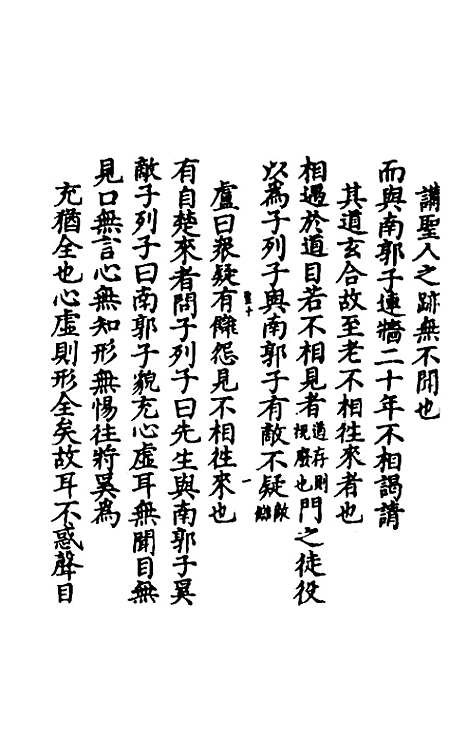 講聖人之跡無不聞也
而與南郭子連牆二十年不相謁請
其道玄合故至老不相往來者也
相遇於道目若不相見者道存則視廢也門之徒役
以為子列子與南郭子有敵不疑敵讎
盧曰衆疑有讎怨見不相往來也
有自楚來者問子列子曰先生與南郭子奚
敵子列子曰南郭子貌充心虛耳無聞目無
見口無言心無知形無惕往將奚為
充猶全也心虛則形全矣故耳不惑聲目